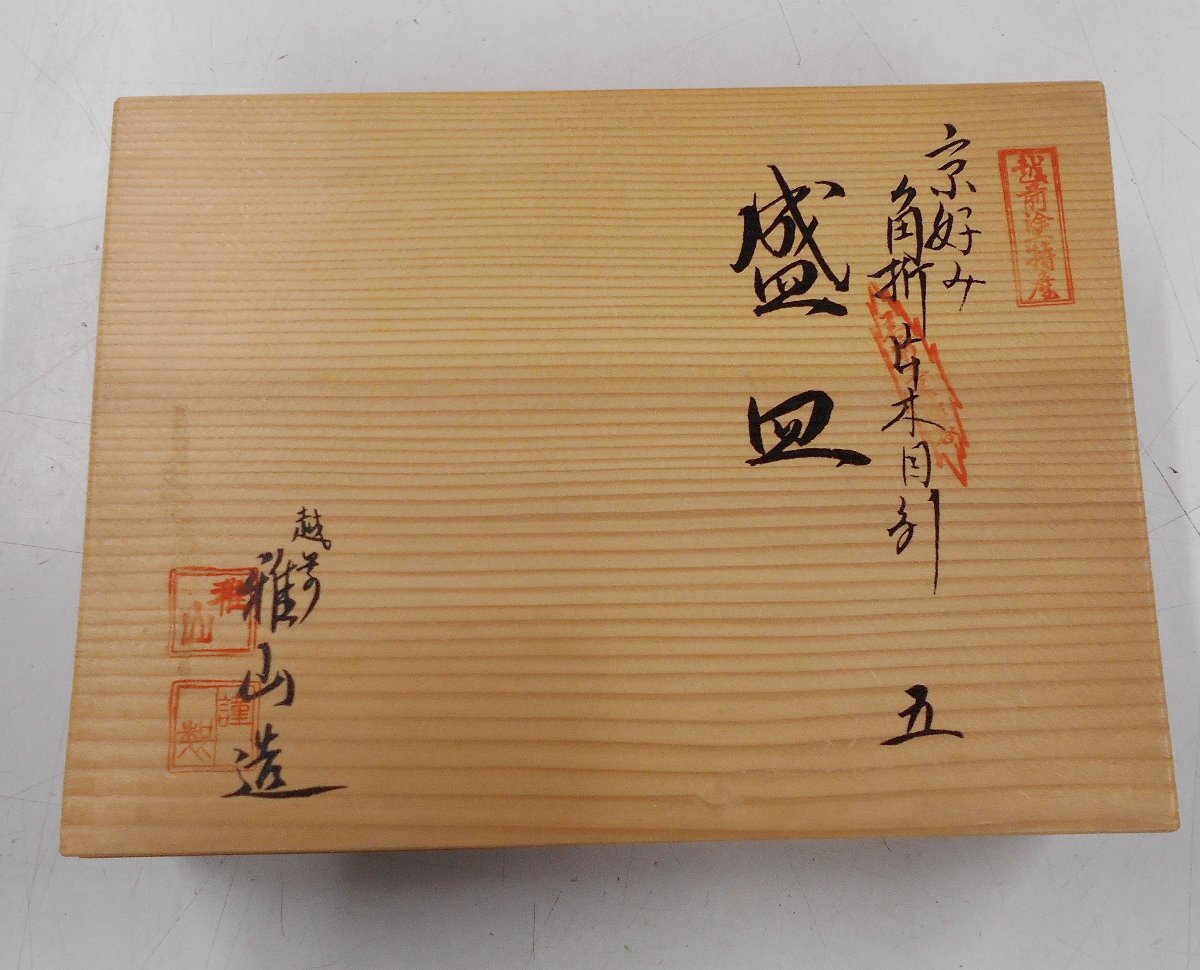 越前塗特産
京好み
角折片木目引
五
盛皿
越前
雅山造
雅山
謹製